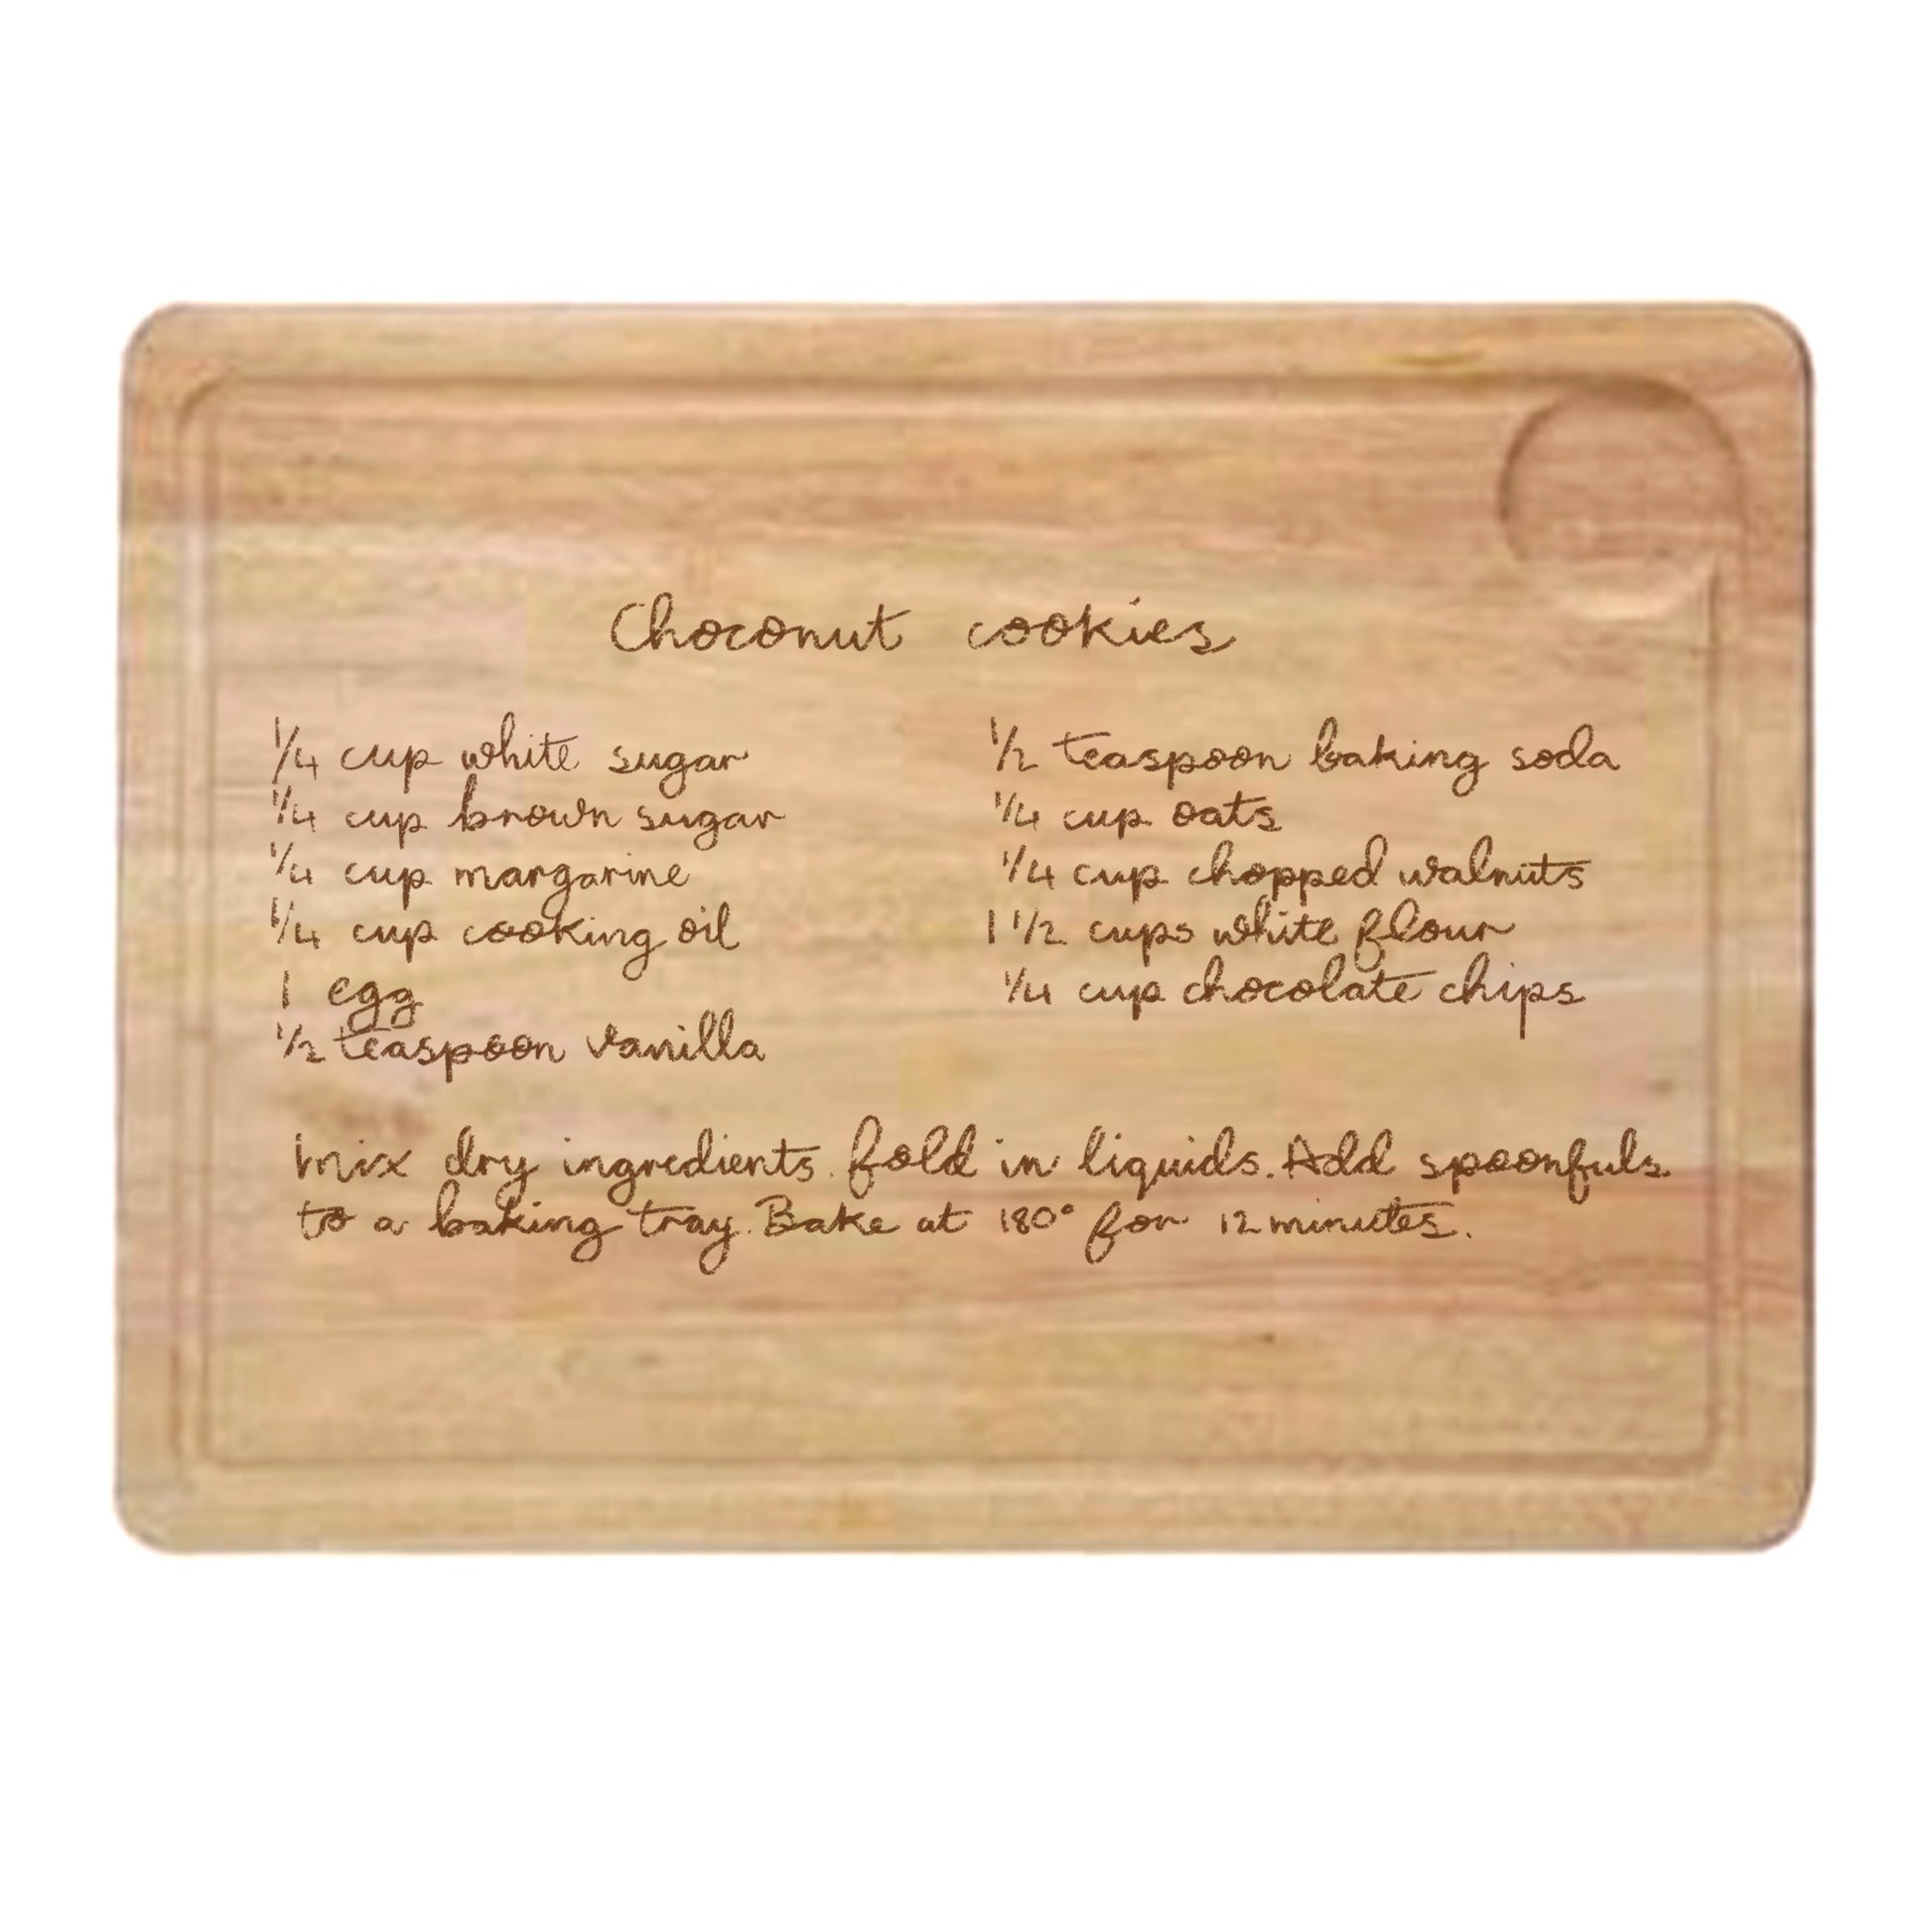 Choconut cookies
1/4 cup white sugar
1/4 cup brown sugar
1/4 cup margarine
1/4 cup cooking oil
1 egg
1/2 teaspoon vanilla
1/2 teaspoon baking soda
1/4 cup oats
1/4 cup chopped walnuts
1 1/2 cups white flour
1/4 cup chocolate chips
Mix dry ingredients. fold in liquids. Add spoonfuls
to a baking tray. Bake at 180° for 12 minutes.